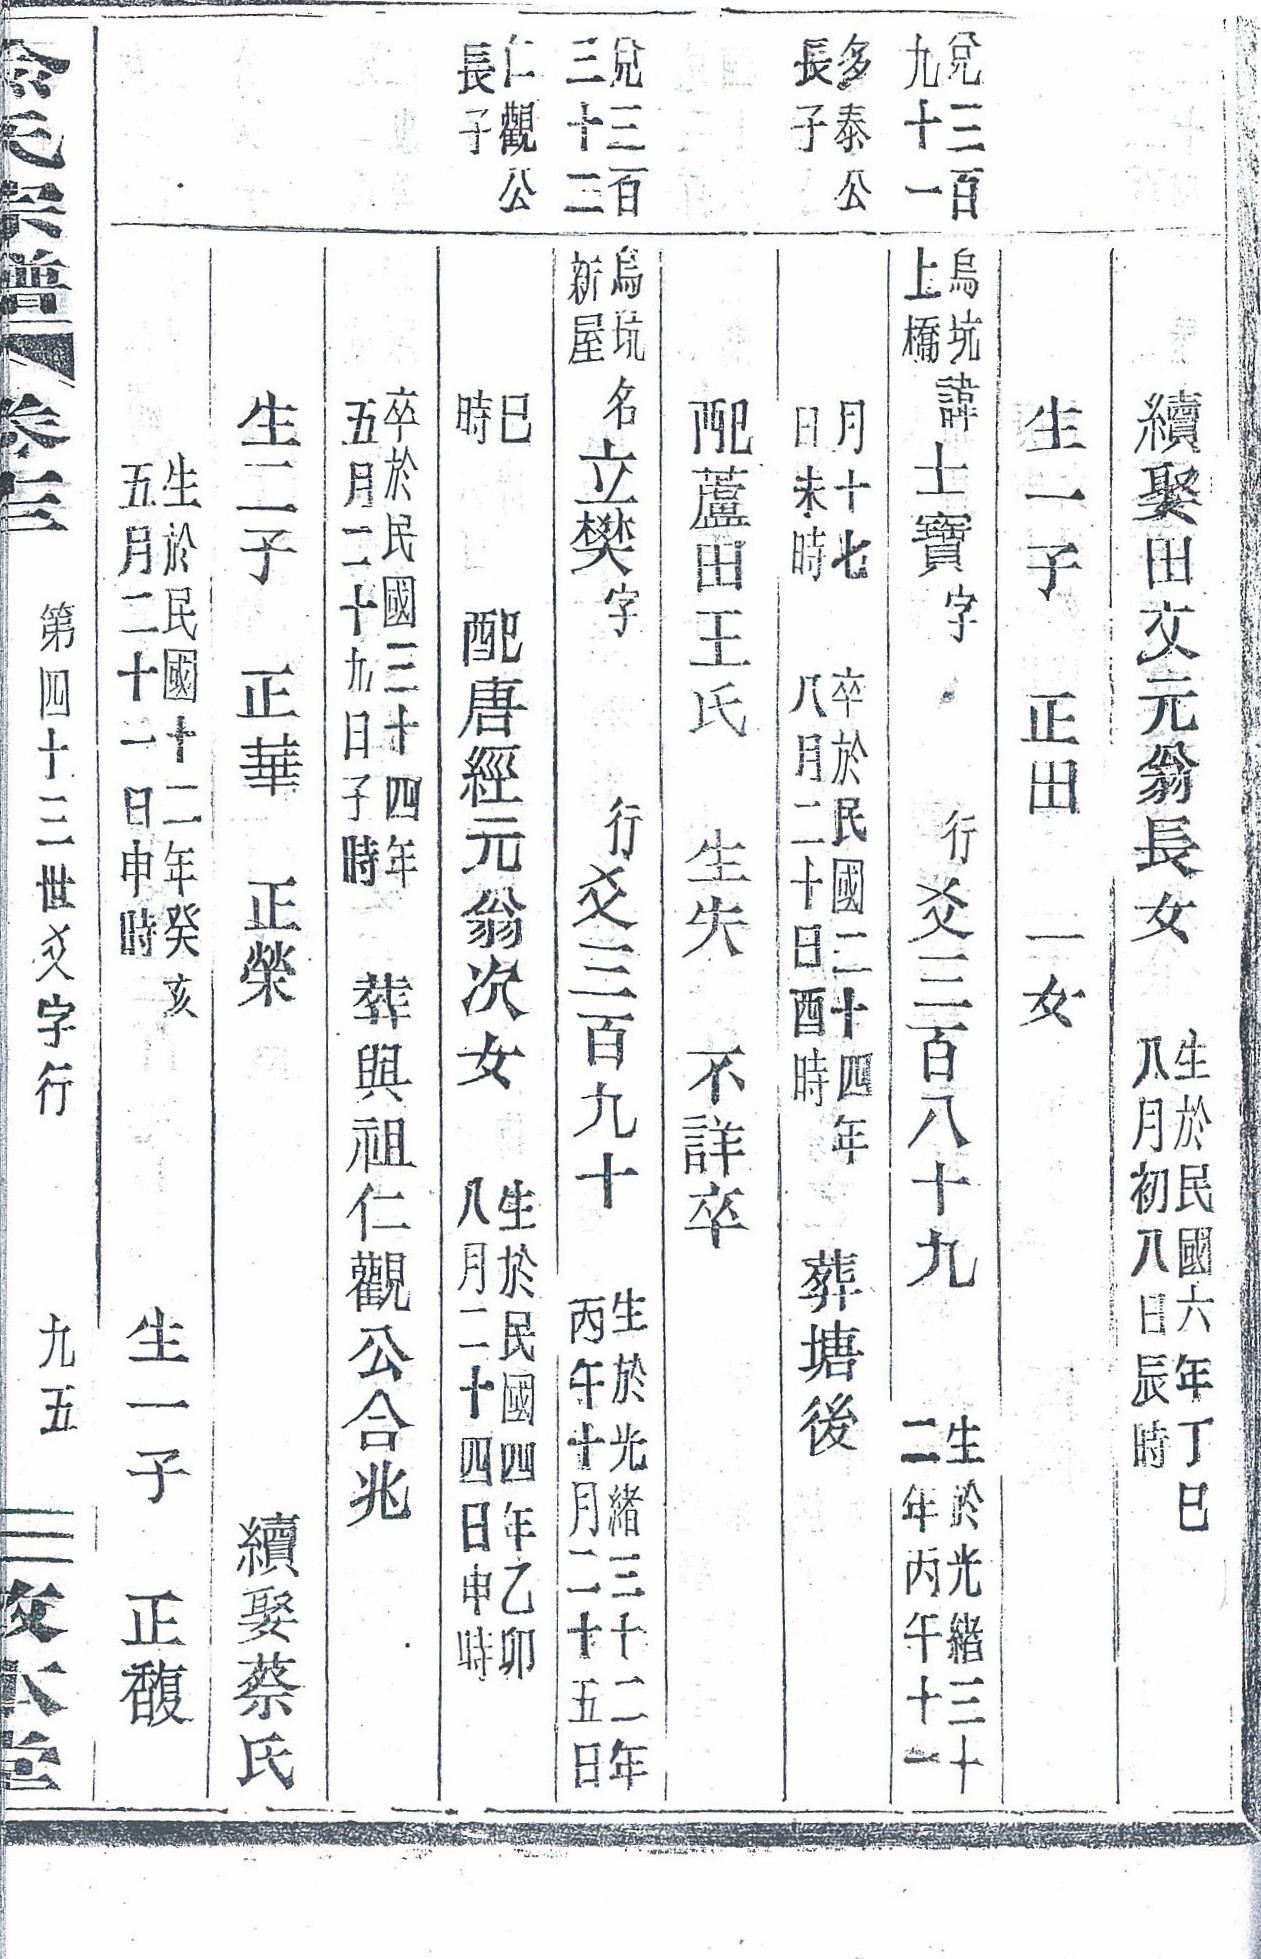 續娶田文元翁長女 生於民國六年丁巳
八月初八日辰時
生一子 正田 一女
兌三百
九十一
烏坑
上橋
諱士寶字 行爻三百八十九 生於光緒三十
二年丙午十一
多泰公
長子
月十七
日未時
卒於民國二十四年
八月二十日酉時
葬塘後
配蘆田王氏 生失 不詳卒
兌三百
三十二
烏坑
新屋
名立樊字 行爻三百九十 生於光緒三十二年
丙午十月二十五日
仁觀公
長子
巳
時
配唐經元翁次女 生於民國四年乙卯
八月二十四日申時
卒於民國三十四年
五月二十九日子時
葬與祖仁觀公合兆
生二子 正華 正榮 續娶蔡氏
生於民國十二年癸亥
五月二十一日申時
生一子 正馥
氏宗譜 卷三 第四十三世爻字行 九五 敦本堂